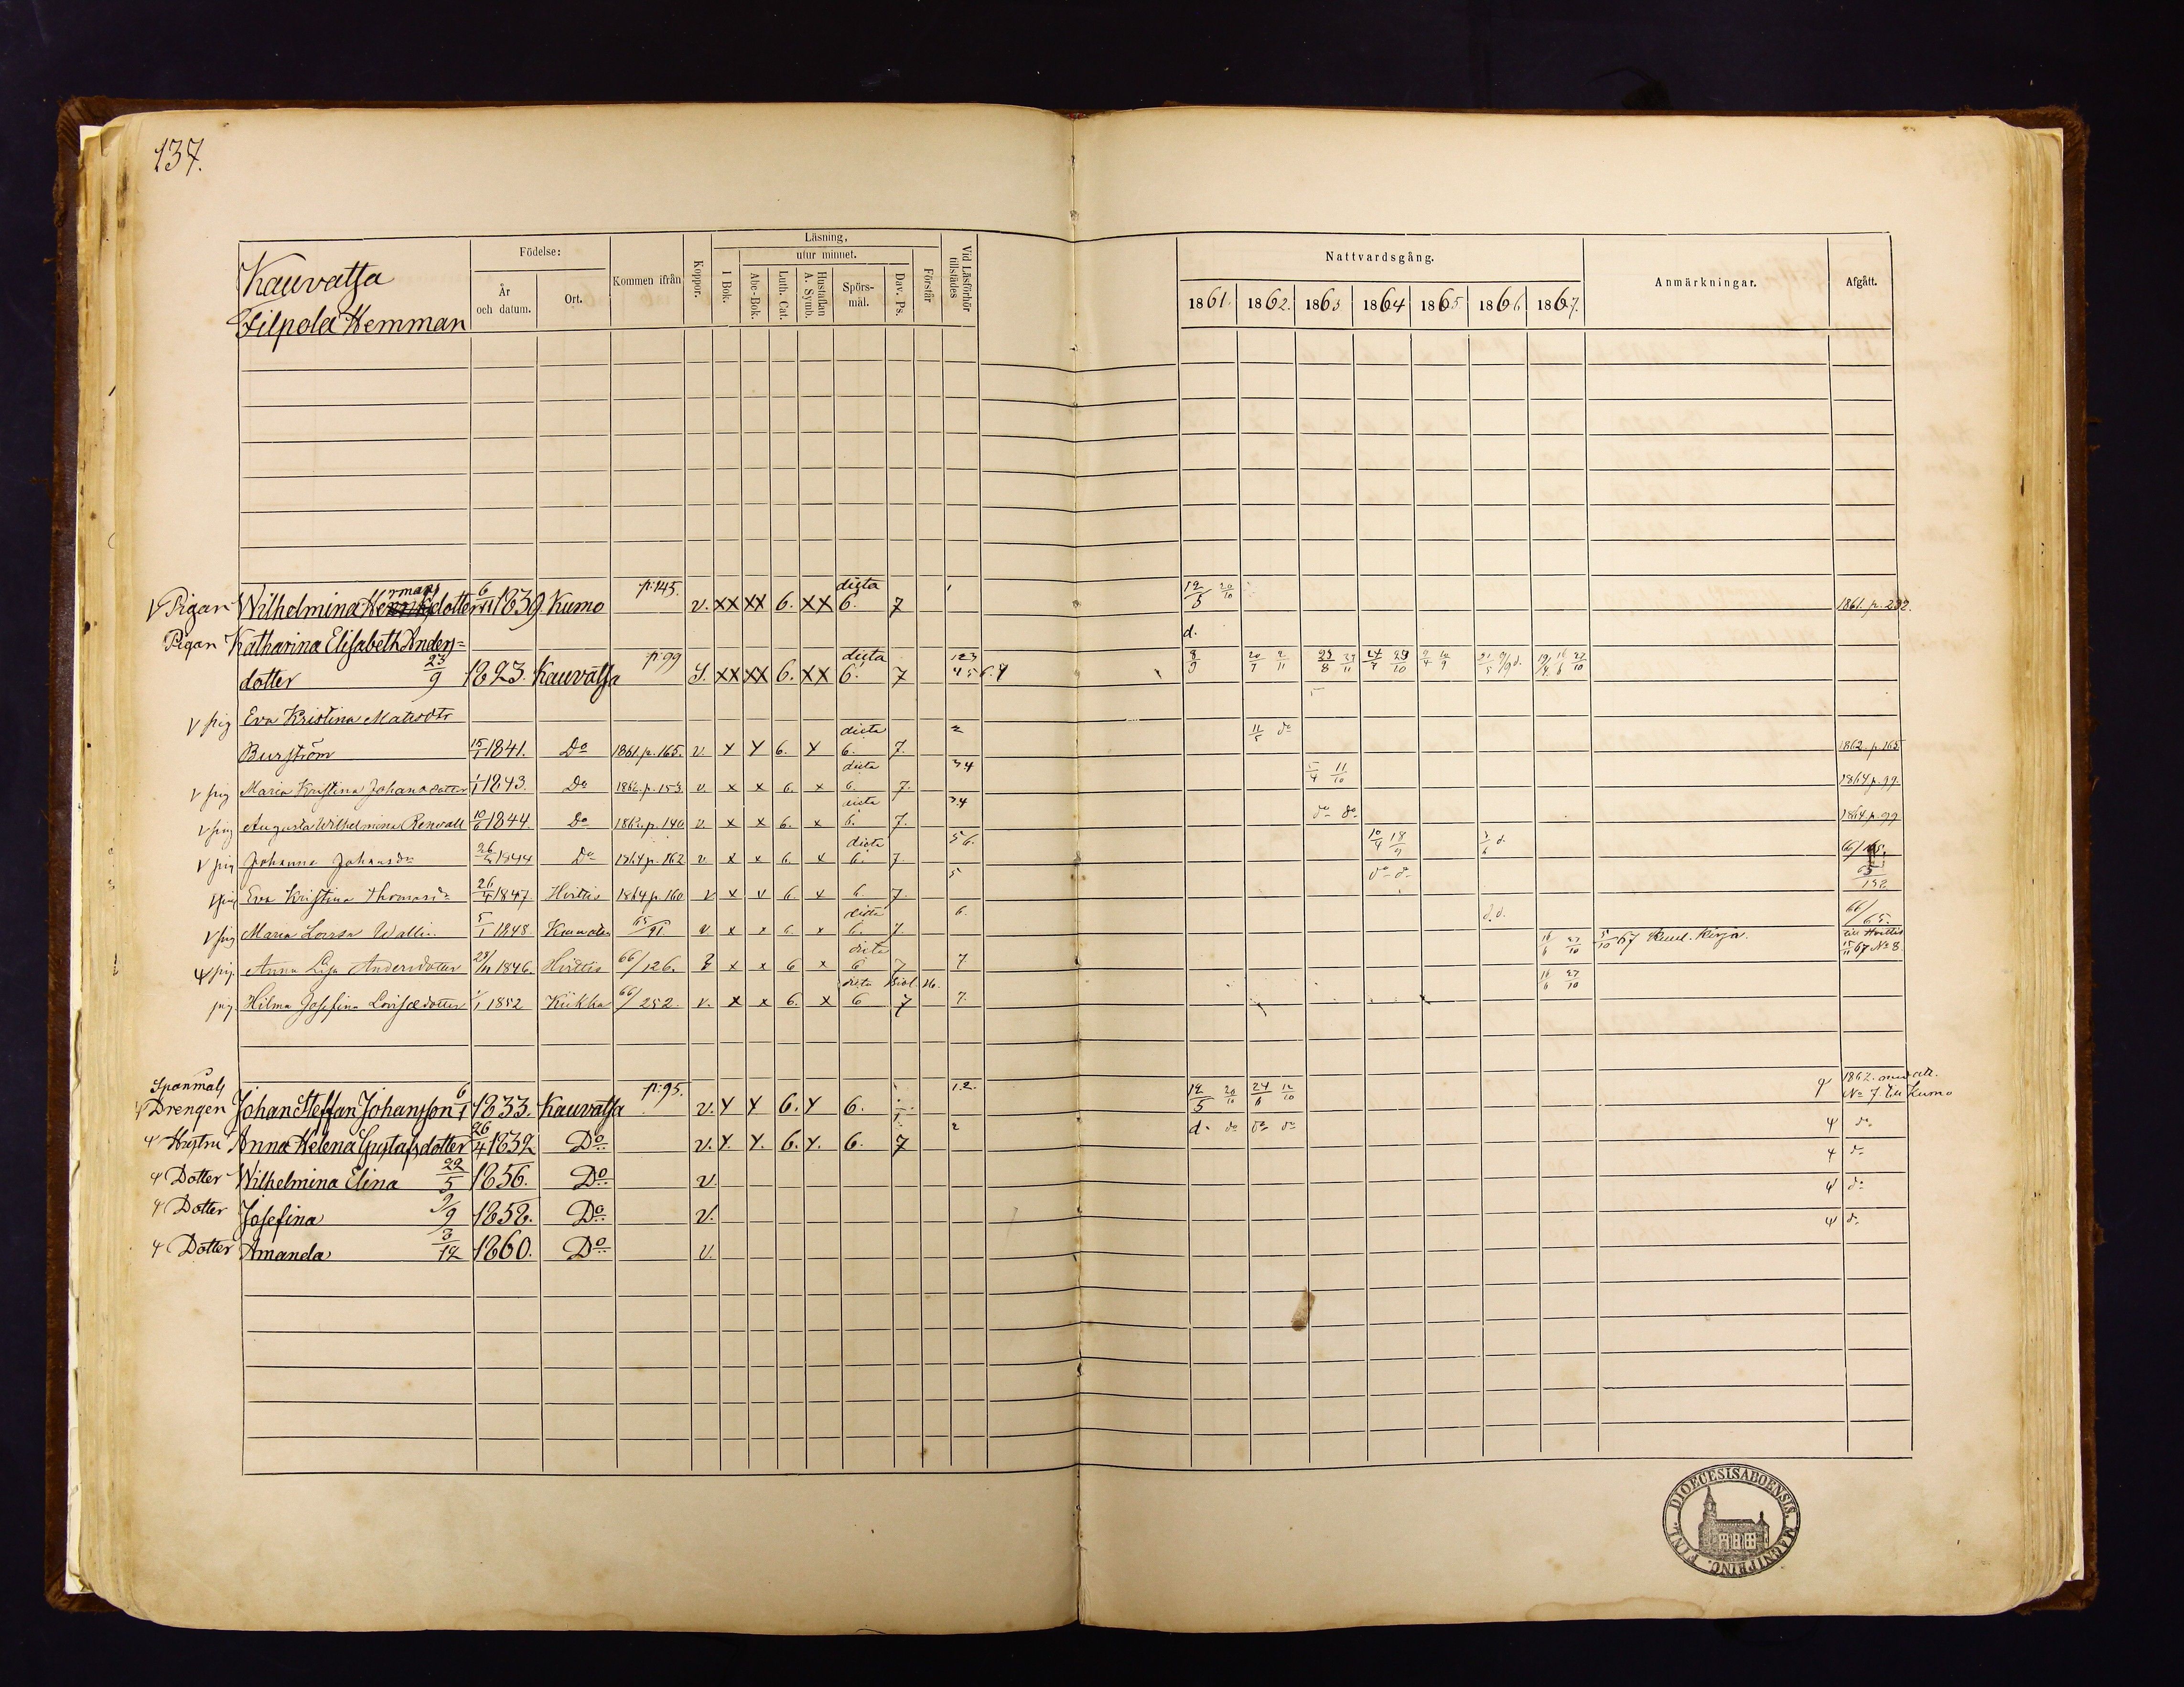 137.
Kauvatsa
Filpola Hemman
Födelse:
År och datum.
Ort.
Kommen ifrån
Koppor.
Läsning,
I Bok.
utur minnet.
Abc-Bok.
Luth. Cat.
Hustaflan A. Symb.
Spörs-mål.
Dav. Ps.
Förstår
Vid Läsförhör tillstädes
Nattvardsgång.
1861. 1862. 1863 1864 1865 1866 1867.
Anmärkningar.
Afgått.
Pigan Wilhelmina Hermansdotter 6/11 1839 Kumo p:145. v. XX XX 6. XX dicta 6. 7 1 12/5 20/10 1861. p. 232.
Pigan Katharina Elisabeth Anders=
dotter 23/9 1823. Kauvatsa p:99 S. XX XX 6. XX dicta 6. 7 123 4567 8/9 20/7 2/11
pig Eva Kristina Matsdtr
Burström 15/7 1841. Do 1861. p. 165. v. Y Y 6. Y dicta 6. 7. 2 11/5 do 1862. p. 165
pig Maria Kristina Johansdotter 1/1 1843. Do 1862. p. 153. v. x x 6. x dicta 6. 7. 34 5/4 11/10 1864 p. 99.
pig Augusta Wilhelmina Renvall 10/6 1844. Do 1862. p. 140 v. x x 6. x dicta 6. 7. 34 do do 1864 p. 99
pig Johanna Johansdr 1844 Do 1864 p. 162 v. x x 6. x dicta 6. 7. 56. 10/4 18/9
pig Eva Kristina Thomasdr 26/4 1847 Hvittis 1864 p. 160 v x v 6. x 6. 7. 5 do do
pig Maria Lovisa Wallin 5/1 1848 Kauvatsa 65/91 v x x 6. x dicta 6. 7 6. d. d. 66/65.
pig. Anna Lisa Andersdotter 1846. Hvittis 66/126. x x 6 x dicta 6 7 7 16/6 27/10 5/10 67 till Hvittis 15/11 67 No 8
pig. Hilma Josefina Lovisædotter 1/1 1852 Kiikka 66/252. v. x x 6. x dicta 6 7 7. 16/6 27/10
Spanmåls
Drengen Johan Steffan Johansson 6/1 1833. Kauvatsa p:95. v. Y Y 6. Y 6. 12. 12/5 20/10 24/6 12/10 1862. No 7. till Kumo
Hustru Anna Helena Gustafsdotter 26/4 1832 Do v. Y. Y. 6. Y. 6. 7 2 d. do do do do
Dotter Wilhelmina Elina 22/5 1856. Do v. do
Dotter Josefina 2/9 1858. Do v. do
Dotter Amanda 8/12 1860. Do v. do
FINL. DIOECESIS ABOENSIS. MAGNI PRINC.